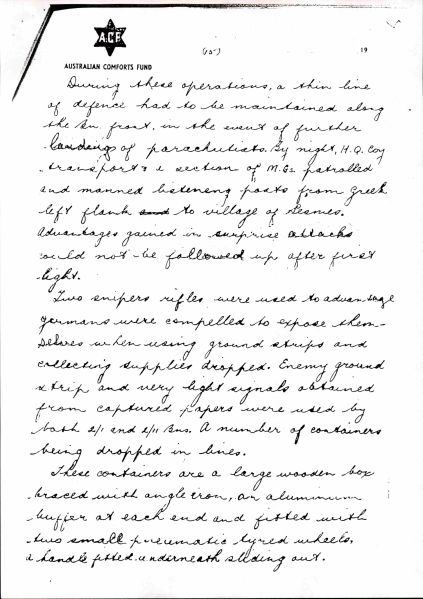 A.C.F.
(15)
19
AUSTRALIAN COMFORTS FUND
During these operations, a thin line
of defence had to be maintained along
the Bn. front, in the event of further
landing of parachutists. By night, H.Q. Coy
transport & a section of M.Gs patrolled
and manned listening posts from Greek
left flank to village of
Advantages gained in surprise attacks
could not be followed up after first
light.
Two snipers rifles were used to advantage
Germans were compelled to expose them-
selves when using ground strips and
collecting supplies dropped. Enemy ground
strip and very light signals obtained
from captured papers were used by
both 2/1 and 2/11 Bns. A number of containers
being dropped in lines.
These containers are a large wooden box
braced with angle iron, an aluminium
buffer at each end and fitted with
two small pneumatic tyred wheels,
a handle fitted underneath sliding out.